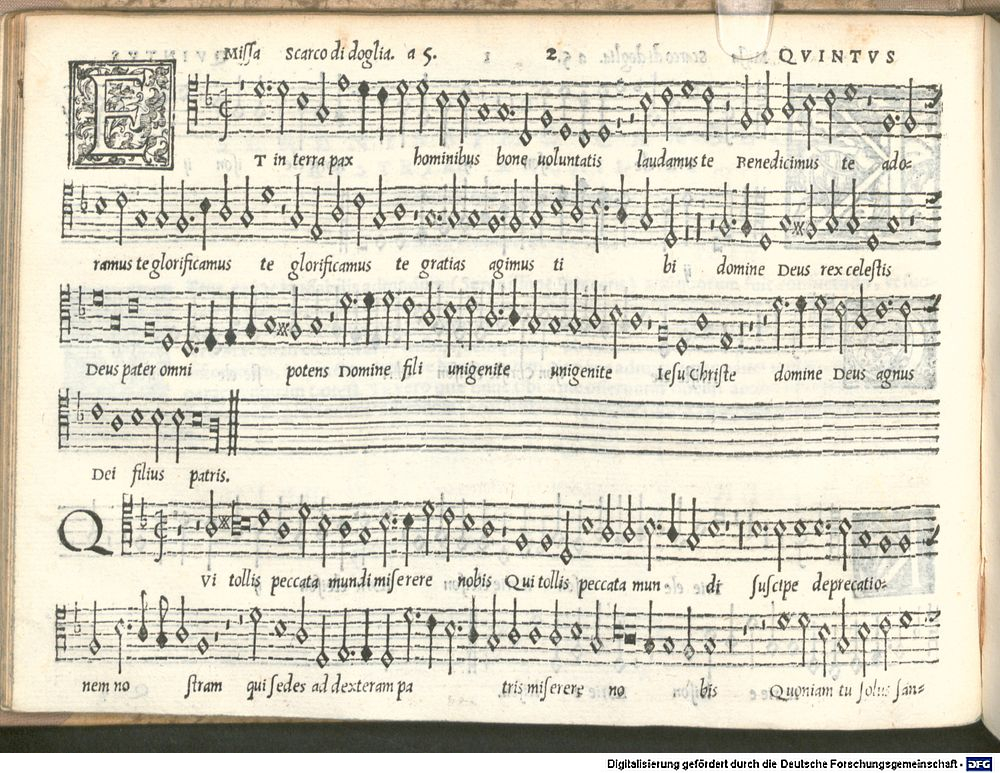 Missa Scarco di doglia. a 5. 2. QVINTVS
ET in terra pax hominibus bone voluntatis laudamus te Benedicimus te ado-
ramus te glorificamus te glorificamus te gratias agimus ti bi domine Deus rex celestis
Deus pater omni potens Domine fili unigenite unigenite Iesu Christe domine Deus agnus
Dei filius patris.
QVi tollis peccata mundi miserere nobis Qui tollis peccata mun di suscipe deprecatio-
nem no stram qui sedes ad dexteram pa tris miserere no bis Quoniam tu solus san-
Digitalisierung gefördert durch die Deutsche Forschungsgemeinschaft - DFG